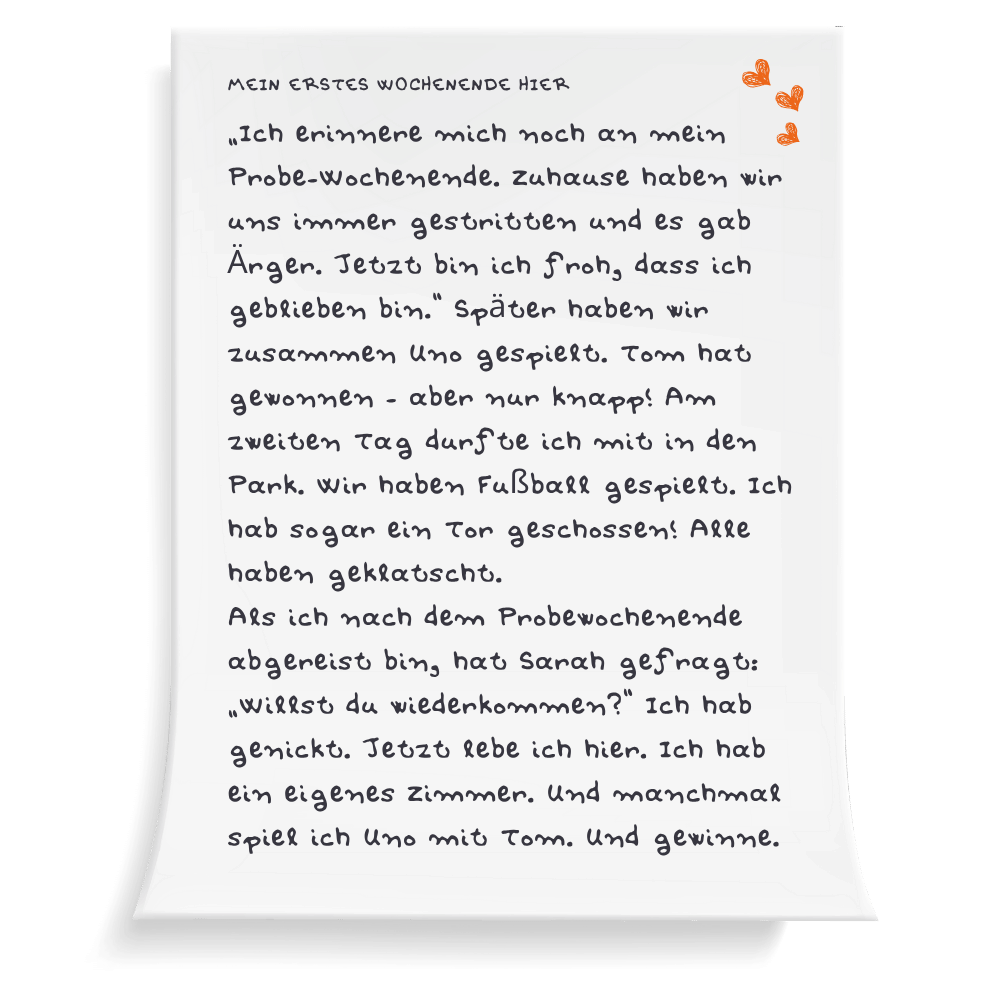 MEIN ERSTES WOCHENENDE HIER
„Ich erinnere mich noch an mein
Probe-Wochenende. Zuhause haben wir
uns immer gestritten und es gab
Ärger. Jetzt bin ich froh, dass ich
geblieben bin.“ Später haben wir
zusammen Uno gespielt. Tom hat
gewonnen - aber nur knapp! Am
zweiten Tag durfte ich mit in den
Park. Wir haben Fußball gespielt. Ich
hab sogar ein Tor geschossen! Alle
haben geklatscht.
Als ich nach dem Probewochenende
abgereist bin, hat Sarah gefragt:
„Willst du wiederkommen?“ Ich hab
genickt. Jetzt lebe ich hier. Ich hab
ein eigenes Zimmer. Und manchmal
spiel ich Uno mit Tom. Und gewinne.